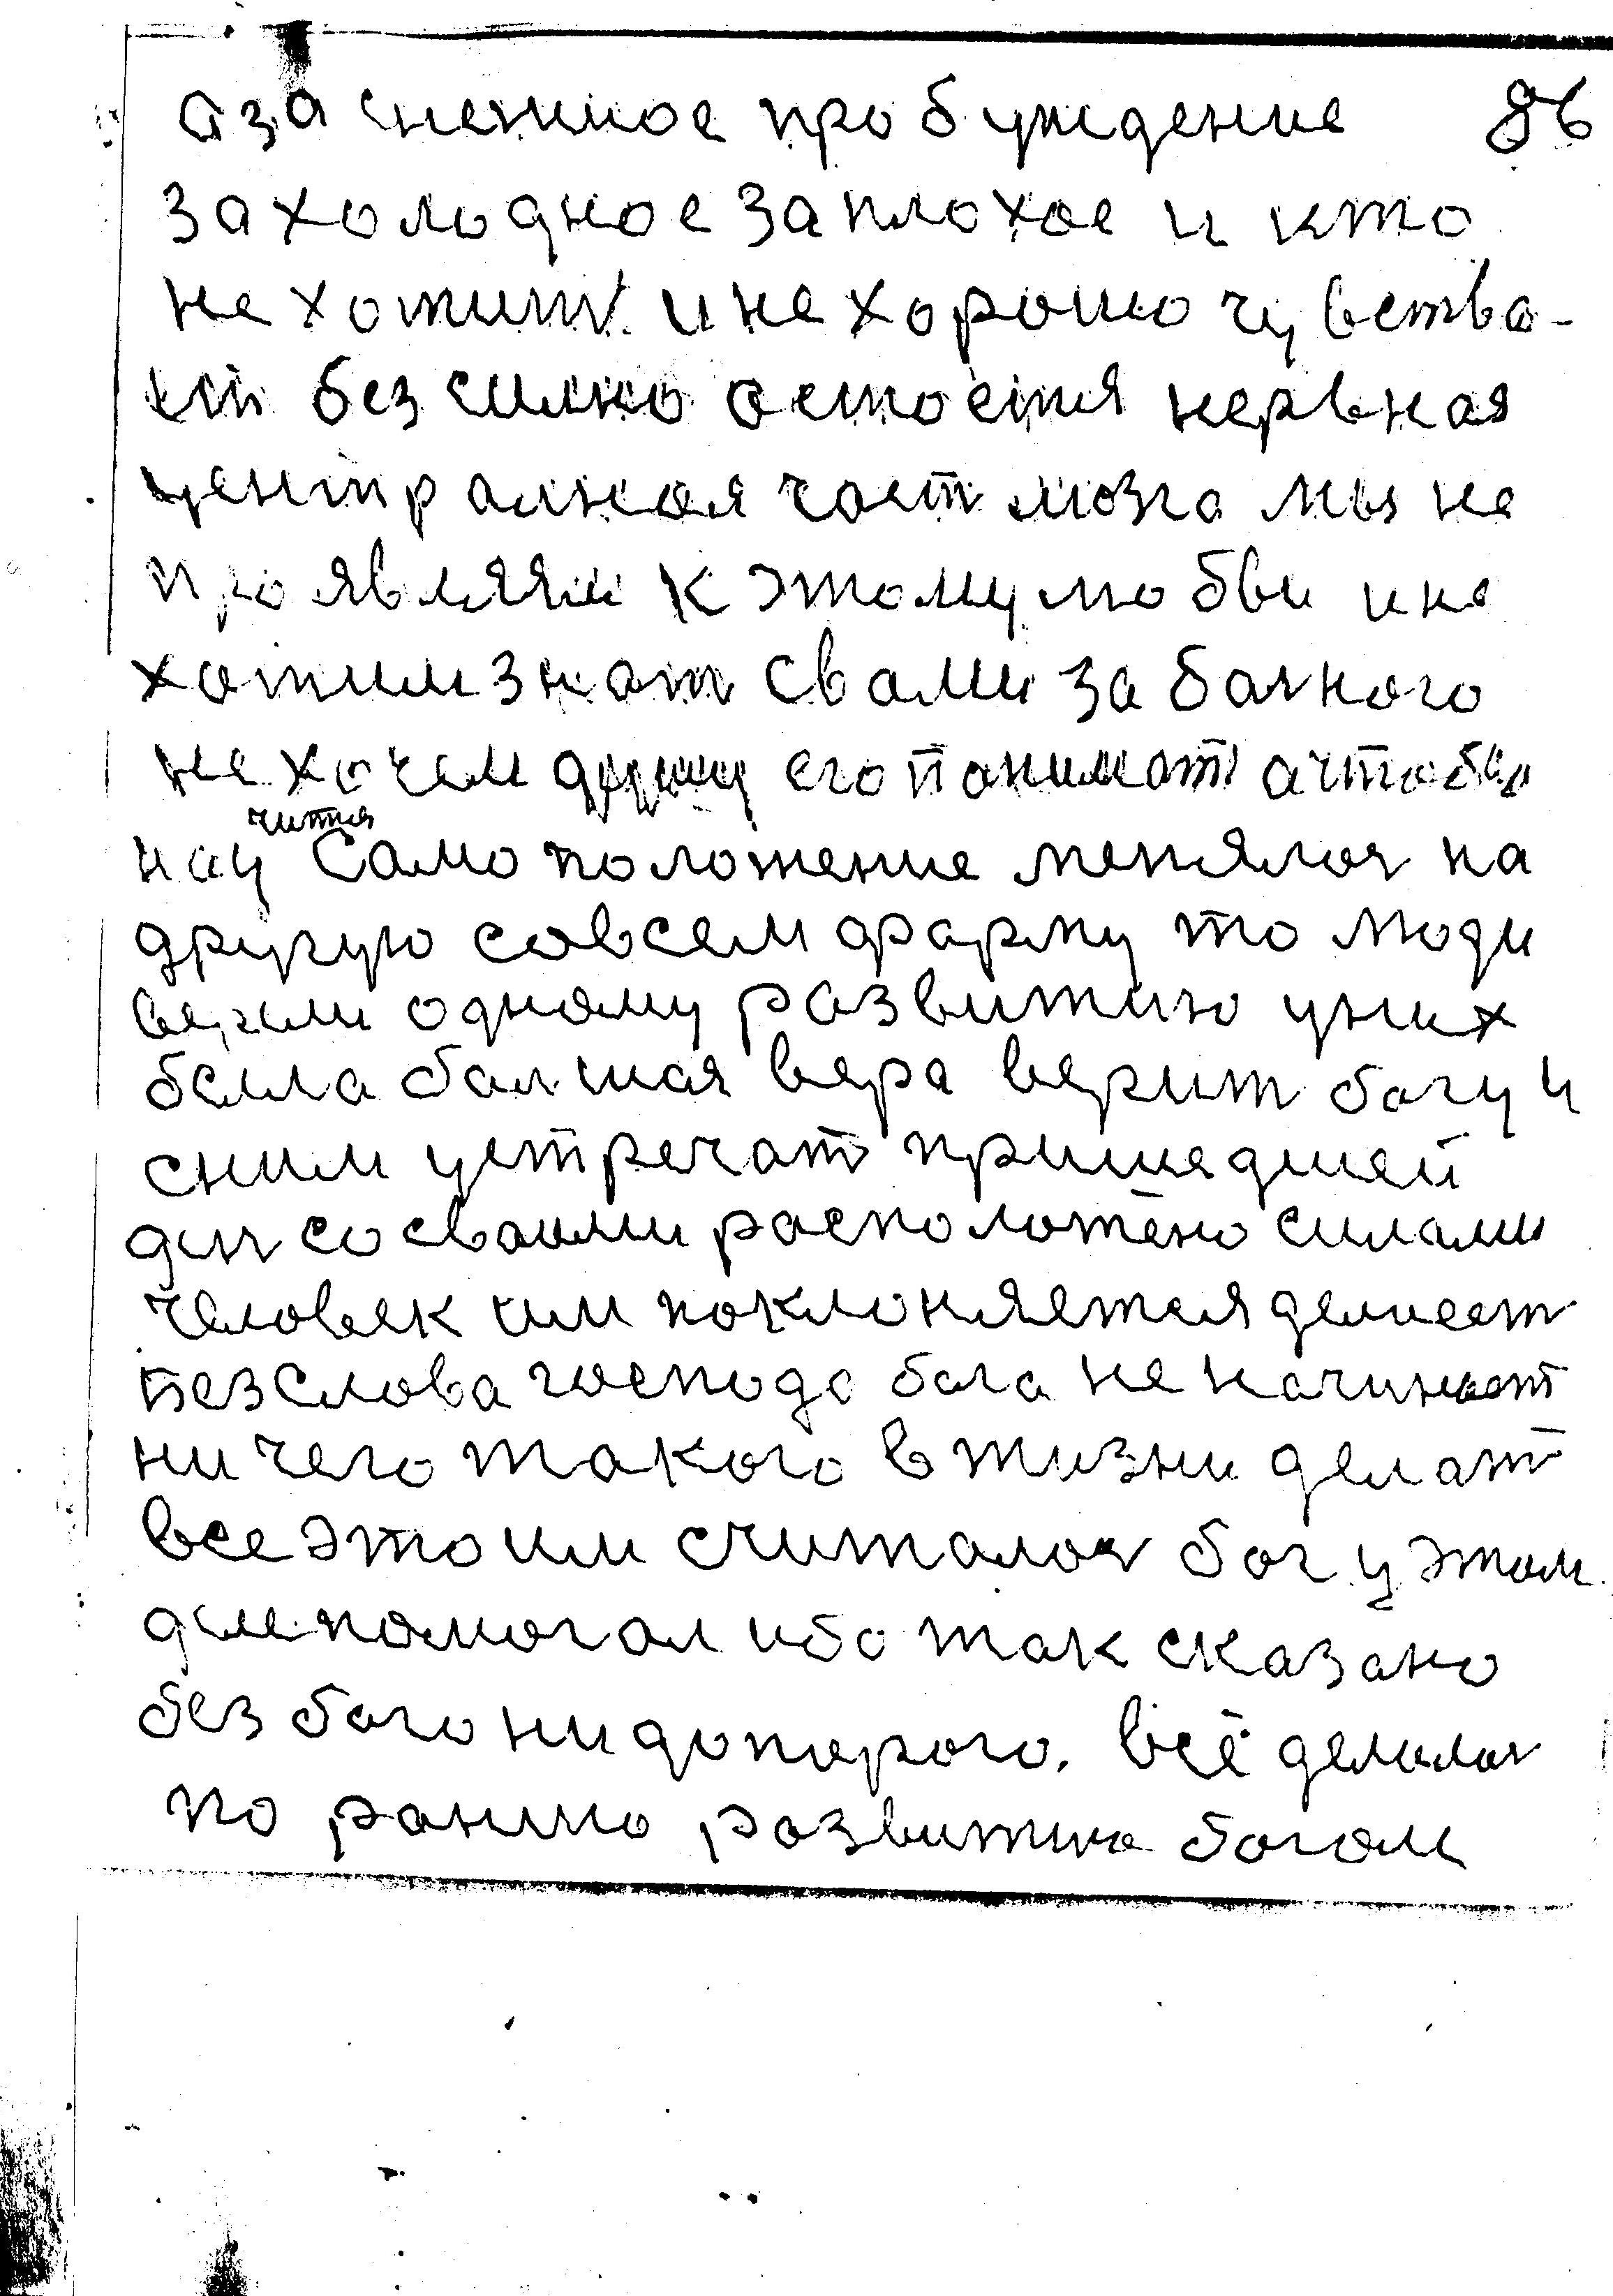 а за снежное пробуждение 86
за холодное за плохое и кто
не хотит и не хорошо чувство-
ит без силно остоется нервная
централная част мозга мы не
проявляем к этому любви и не
хотим знат с вами за болного
не хочем его понимат а чтобы
научится само положение менялос на
другую совсем форму то люди
вери­ли одному развитию у них
была болшая вера верит богу и
сним устречат пришедшей
ден со своими расположено силами
человек им поклоняется делает
без слова господа бога не начинает
ни чего такого в жизни делат
все это им считалос бог у этом
деле помогал ибо так сказано
без бога ни до порога. всё делалос
по ранню развитию богом